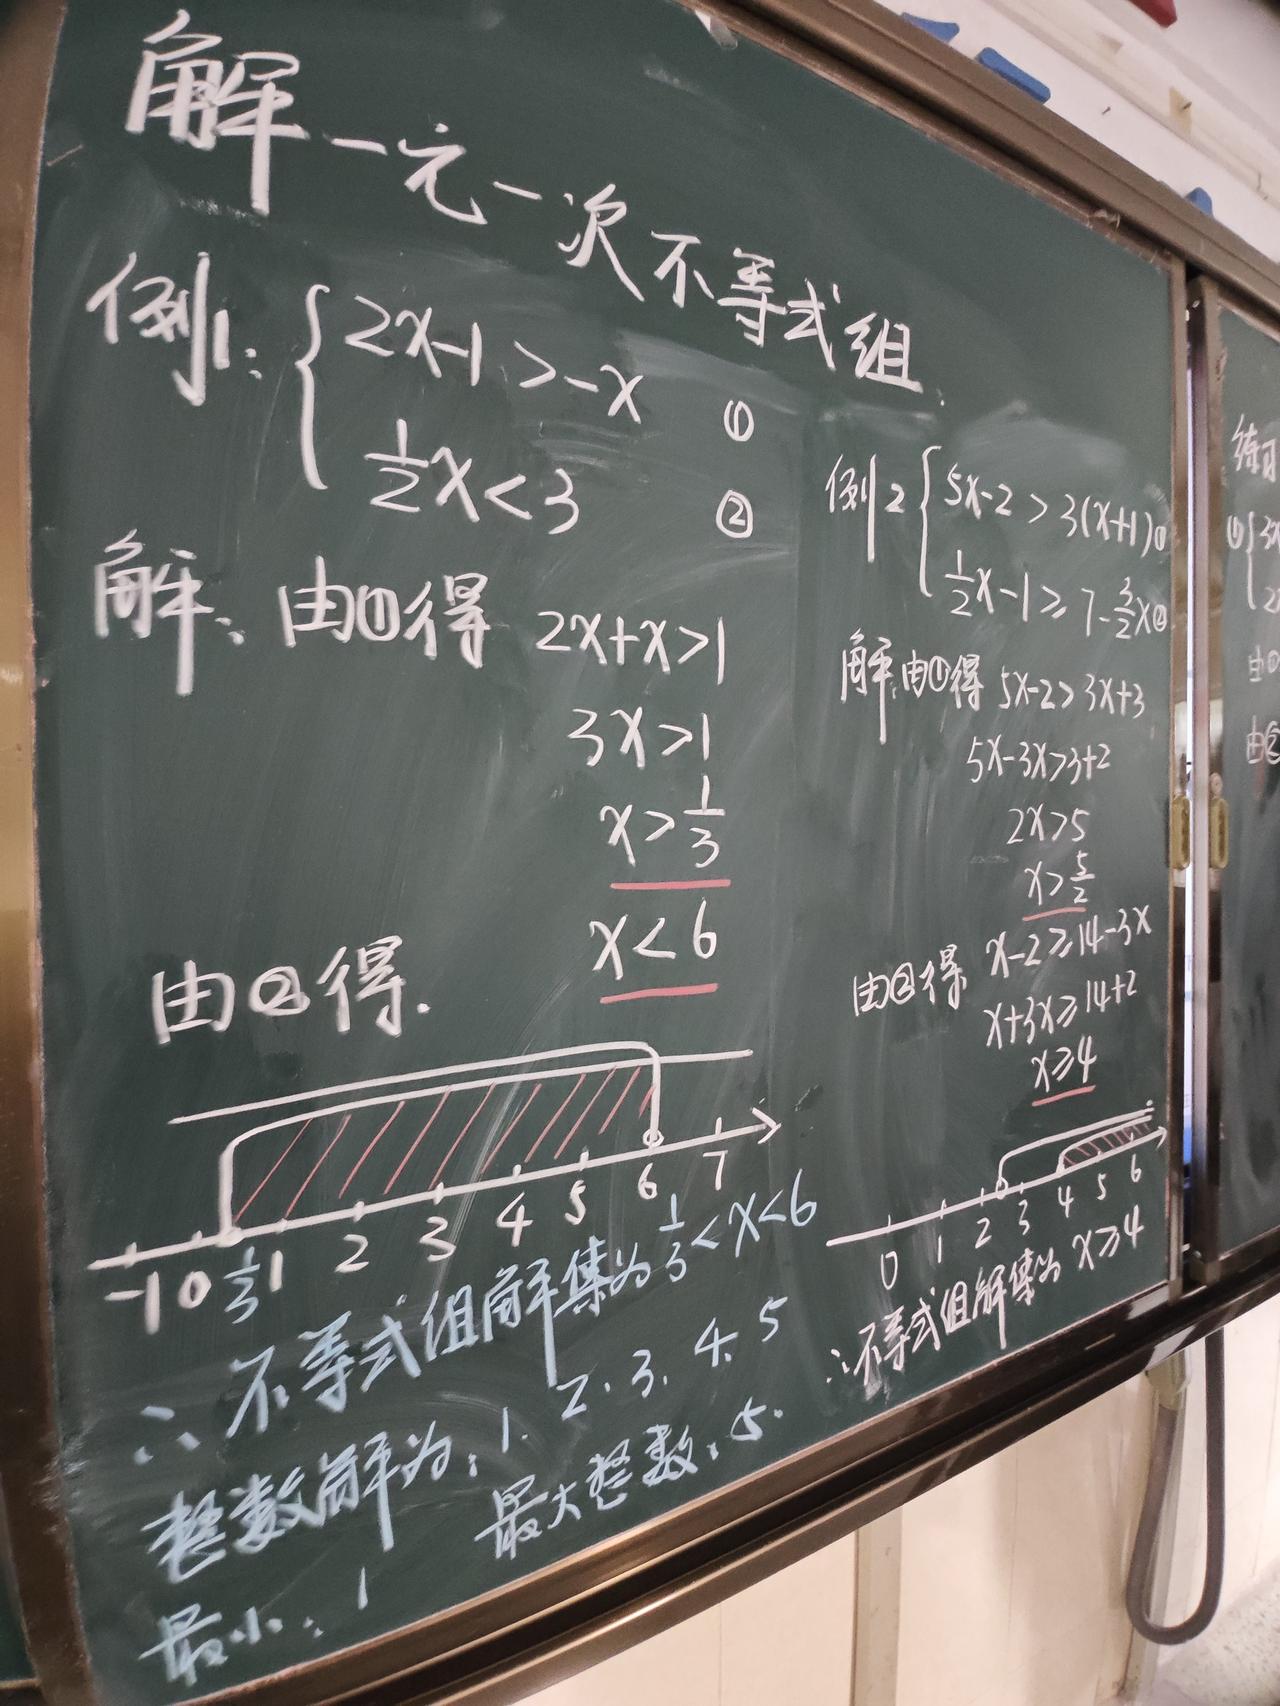 解一元一次不等式组.
例1: { 2x-1>-x ①
½x<3 ②
解: 由①得 2x+x>1
3x>1
x>1/3
由②得. x<6
-1 0 1/3 1 2 3 4 5 6 7
∴不等式组解集为 1/3<x<6
整数解为: 1. 2. 3. 4. 5
最大整数: 5.
最小: 1
例2 { 5x-2>3(x+1)①
½x-1≥7-3/2x②
解:由①得 5x-2>3x+3
5x-3x>3+2
2x>5
x>5/2
由②得 x-2≥14-3x
x+3x≥14+2
x≥4
0 1 2 3 4 5 6
∴不等式组解集为 x≥4
练习
由①
由②